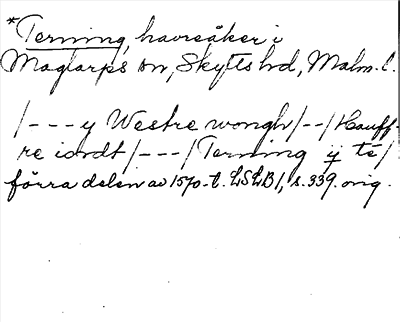 *Terning, havreåker i
Maglarps sn, Skytts hd, Malm. l.
/--- y Westre wongh/--/Hauff-
re iordt/---/Terning ÿ té/
förra delen av 1570-t. LSLB1, s. 339. orig.